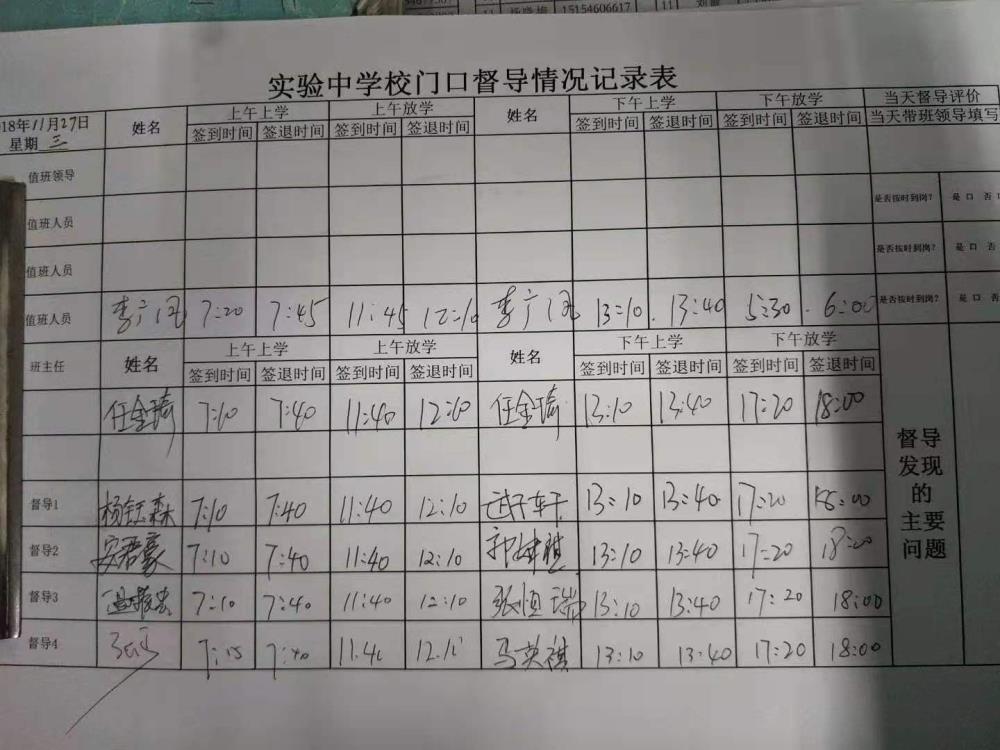 15154606617 11
实验中学校门口督导情况记录表
018年11月27日 星期 三 姓名 上午上学 上午放学 姓名 下午上学 下午放学 当天督导评价
签到时间 签退时间 签到时间 签退时间 签到时间 签退时间 签到时间 签退时间 当天带班领导填写
值班领导
值班人员 是否按时到岗? 是 口 否 口
值班人员 是否按时到岗? 是 口 否
值班人员 李广 7:20 7:45 11:45 12:10 李广 13:10 13:40 5:30 6:00 是否按时到岗? 是 口 否
班主任 姓名 上午上学 上午放学 姓名 下午上学 下午放学
签到时间 签退时间 签到时间 签退时间 签到时间 签退时间 签到时间 签退时间
任金琦 7:10 7:40 11:40 12:10 任金琦 13:10 13:40 17:20 18:00
督导发现的主要问题
督导1 杨钰森 7:10 7:40 11:40 12:10 13:10 13:40 17:20 18:00
督导2 安君豪 7:10 7:40 11:40 12:10 13:10 13:40 17:20 18:00
督导3 7:10 7:40 11:40 12:10 张恒瑞 13:10 13:40 17:20 18:00
督导4 7:15 7:40 11.41 马英祺 13:10 13:40 17:20 18:00